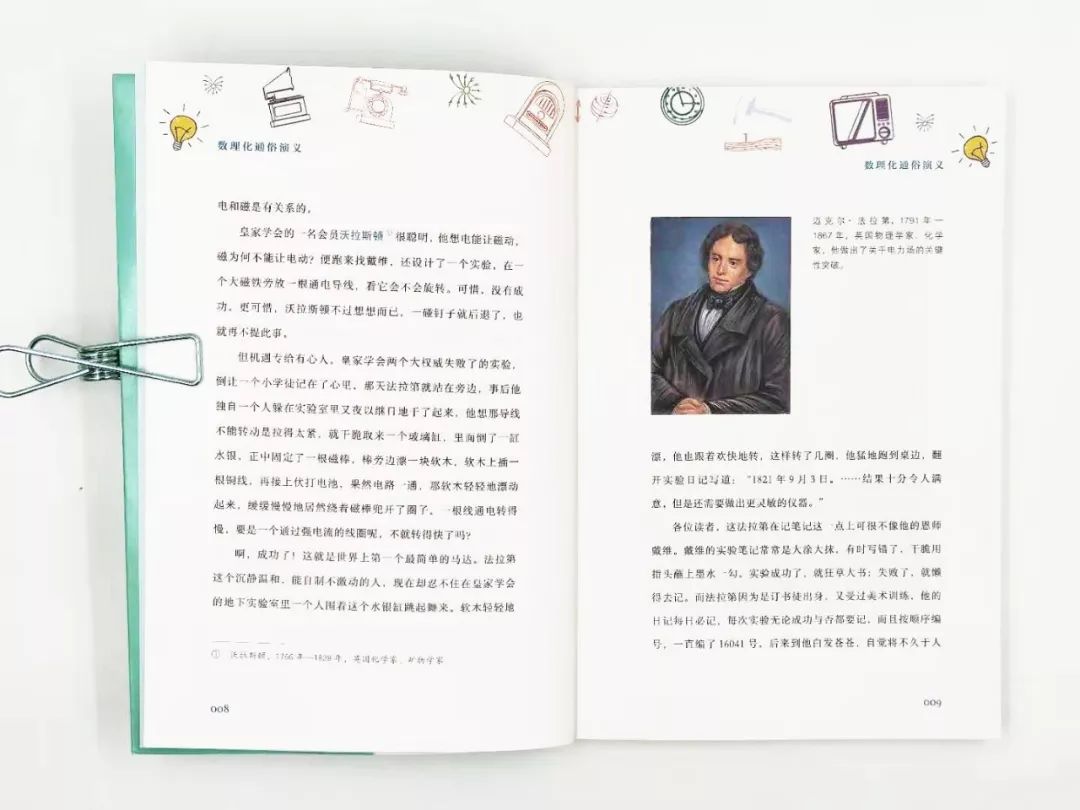 数理化通俗演义
电和磁是有关系的。
皇家学会的一名会员沃拉斯顿①很聪明，他想电能让磁动，
磁为何不能让电动？便跑来找戴维，还设计了一个实验，在一
个大磁铁旁放一根通电导线，看它会不会旋转。可惜，没有成
功，更可惜，沃拉斯顿不过想想而已，一碰钉子就后退了，也
就再不提此事。
但机遇专给有心人，皇家学会两个大权威失败了的实验，
倒让一个小学徒记在了心里，那天法拉第就站在旁边，事后他
独自一个人躲在实验室里又夜以继日地干了起来，他想那导线
不能转动是拉得太紧，就干脆取来一个玻璃缸，里面倒了一缸
水银，正中固定了一根磁棒，棒旁边漂一块软木，软木上插一
根铜线，再接上伏打电池，果然电路一通，那软木轻轻地漂动
起来，缓缓慢慢地居然绕着磁棒兜开了圈子。一根线通电转得
慢，要是一个通过强电流的线圈呢，不就转得快了吗？
啊，成功了！这就是世界上第一个最简单的马达。法拉第
这个沉静温和，能自制不激动的人，现在却忍不住在皇家学会
的地下实验室里一个人围着这个水银缸跳起舞来。软木轻轻地
① 沃拉斯顿，1766 年—1828 年，英国化学家、矿物学家
008
数理化通俗演义
迈克尔·法拉第，1791 年—
1867 年，英国物理学家、化学
家，他做出了关于电力场的关键
性突破。
漂，他也跟着欢快地转，这样转了几圈，他猛地跑到桌边，翻
开实验日记写道：“1821 年 9 月 3 日。……结果十分令人满
意，但是还需要做出更灵敏的仪器。”
各位读者，这法拉第在记笔记这一点上可很不像他的恩师
戴维。戴维的实验笔记常常是大涂大抹，有时写错了，干脆用
指头蘸上墨水一勾。实验成功了，就狂草大书；失败了，就懒
得去记。而法拉第因为是订书徒出身，又受过美术训练，他的
日记每日必记，每次实验无论成功与否都要记，而且按顺序编
号，一直编了 16041 号。后来到他白发苍苍，自觉将不久于人
009